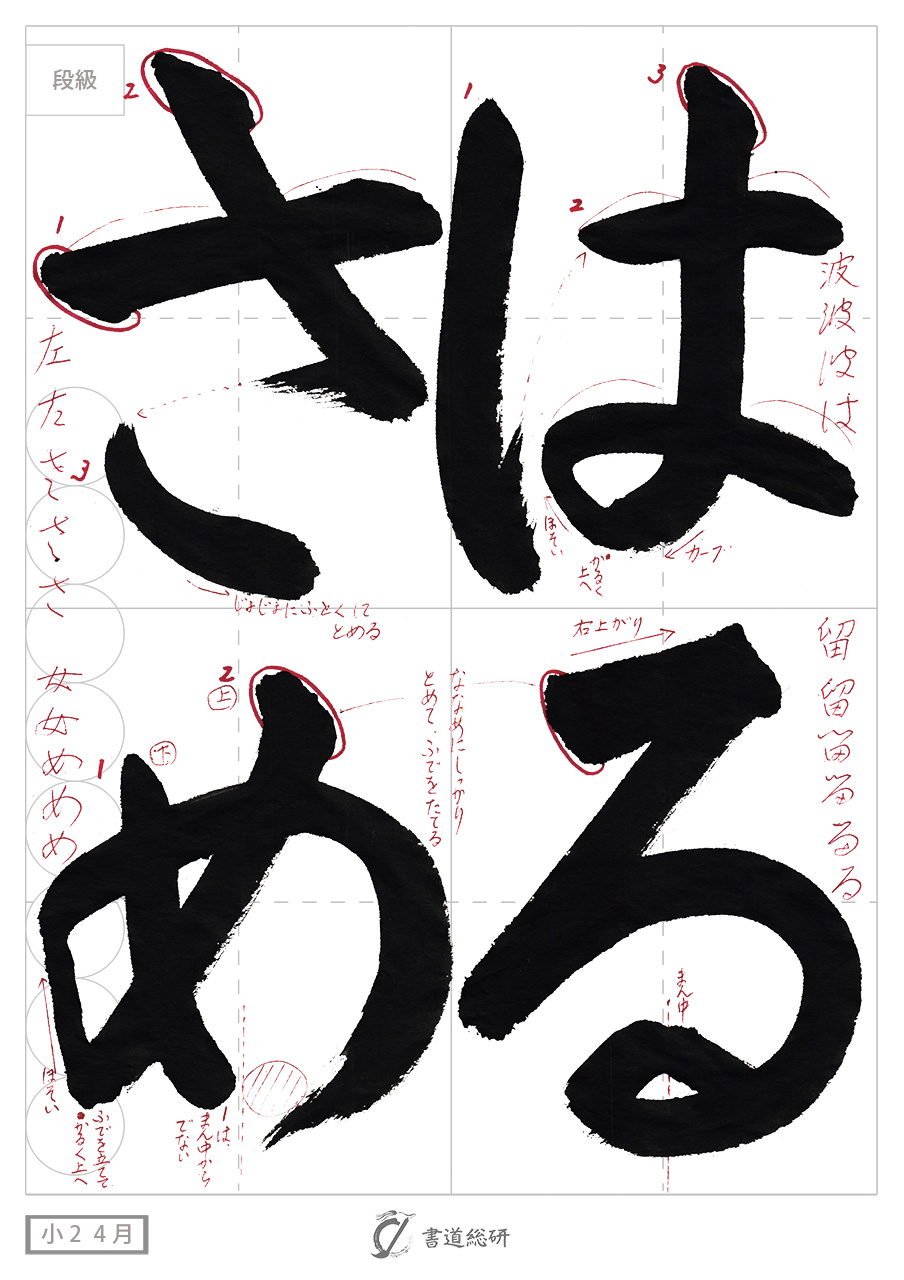 段級
はる
さめ
1
2
3
波
波
は
ほそい
かるく
上へ
カーブ
1
2
3
左
さ
さ
じょじょにふとくして
とめる
右上がり
留
留
る
る
ななめにしっかり
とめて、ふでをたてる
まん中
1
下
2
上
女
女
め
め
め
ほそい
ふでを立てて
かるく上へ
1は、
まん中から
でない
小2 4月
書道総研